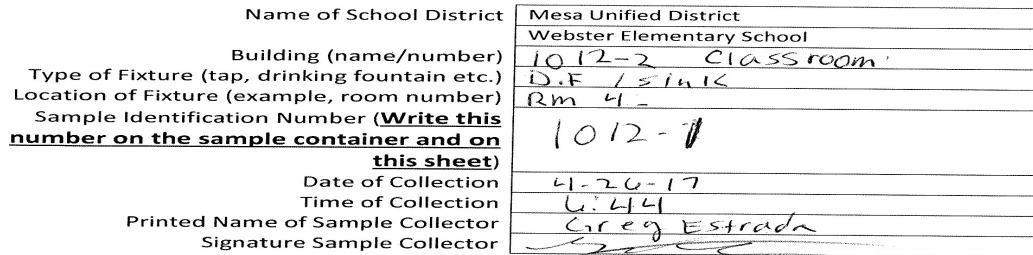 Name of School District Mesa Unified District
Webster Elementary School
Building (name/number) 1012-2 Classroom
Type of Fixture (tap, drinking fountain etc.) D.F / sink
Location of Fixture (example, room number) Rm 4 -
Sample Identification Number (Write this
number on the sample container and on
this sheet) 1012-1
Date of Collection 4-26-17
Time of Collection 6:44
Printed Name of Sample Collector Greg Estrada
Signature Sample Collector